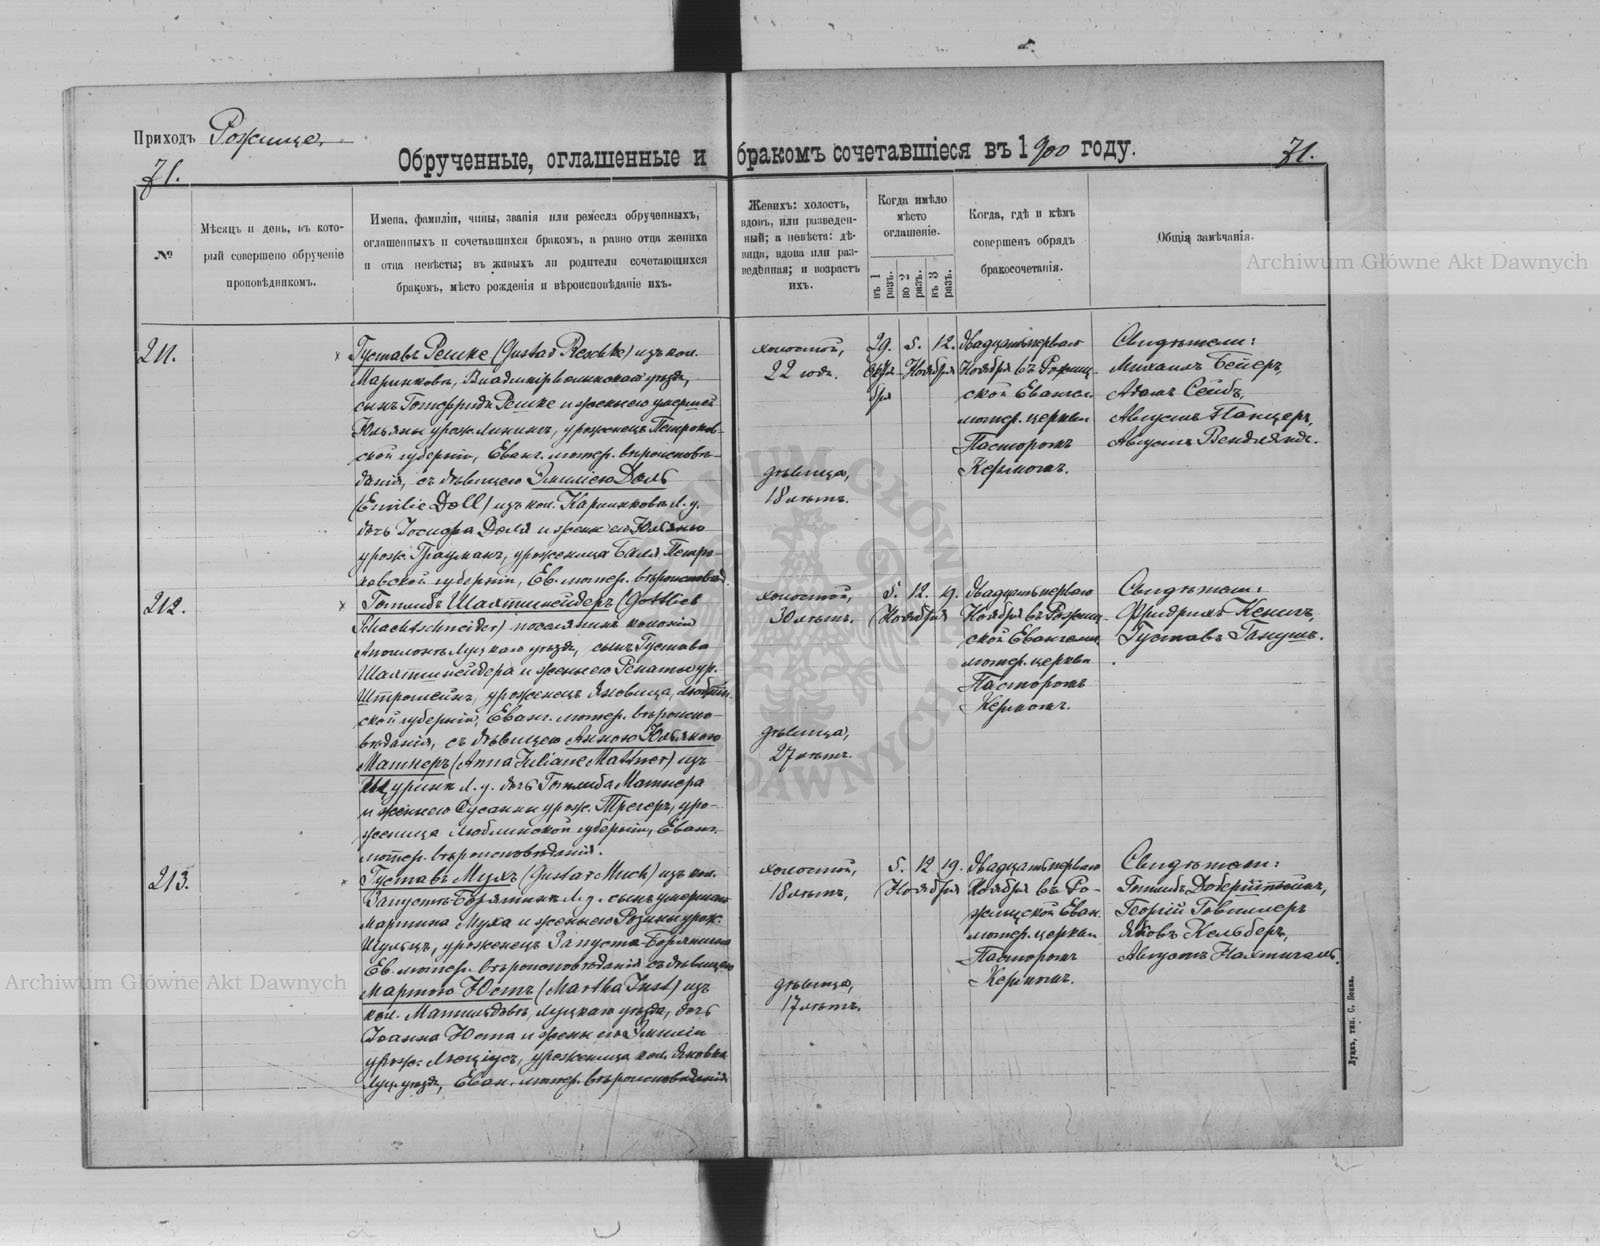 Приходъ Рожище.
71.
Обрученные, оглашенные и бракомъ сочетавшіеся въ 1900 году.
71.
№
Мѣсяцъ и день, въ кото-
рый совершено обрученіе
проповѣдникомъ.
Имена, фамиліи, чины, званія или ремесла обрученныхъ,
оглашенныхъ и сочетавшихся бракомъ, а равно отца жениха
и отца невѣсты; въ живыхъ ли родители сочетающихся
бракомъ, мѣсто рожденія и вѣроисповѣданіе ихъ.
Женихъ: холостъ,
вдовъ, или разведен-
ный; а невѣста: дѣ-
вица, вдова или раз-
ведённая; и возрастъ
ихъ.
Когда имѣло
мѣсто
оглашеніе.
въ 1 разъ.
во 2 разъ.
въ 3 разъ.
Когда, гдѣ и кѣмъ
совершенъ обрядъ
бракосочетанія.
Общія замѣчанія.
211.
Густавъ Решке (Gustav Reschke) изъ кол.
Маринковъ, Владимірволынскаго уѣзда,
сынъ Готфрида Решке и жены его умершей
Юльяны урож. уроженецъ Петроков-
ской губерніи, Еванг. лютер. вѣроисповѣ-
данія, съ дѣвицею Эмиліею Доль
(Emilie Doll) изъ кол. Л. у.
дочь Іосифа Доля и жены его Юльяны
урож. Грауманъ, уроженица Петро-
ковской губерніи, Ев. лютер. вѣроисповѣд.
холостой,
22 года.
дѣвица,
18 лѣтъ.
29. 5. 12.
Октя- Ноября
бря
двадцать перваго
Ноября въ Рожищ-
ской Евангел.
лютер. церкви
Пасторомъ
Кермомъ.
Свидѣтели:
Михаилъ Бейеръ,
Адамъ Сейбъ,
Августъ Панцеръ,
Августъ Вендляндъ.
212.
Готлибъ Шахтшнейдеръ (Gottlieb
Schachtschneider) поселянинъ колоніи
Луцкаго уѣзда, сынъ Густава
Шахтшнейдера и жены его Ренаты ур.
Штрошейнъ, уроженецъ Яновица, Люблин-
ской губерніи, Еванг. лютер. вѣроиспо-
вѣданія, съ дѣвицею Анною Юльяною
Матнеръ (Anna Juliane Mattner) изъ
Щуринъ Л. у. дочь Готлиба Матнера
и жены его Сусанны урож. Трегеръ, уро-
женица Люблинской губерніи, Еванг.
лютер. вѣроисповѣданія.
холостой,
30 лѣтъ,
дѣвица,
27 лѣтъ.
5. 12. 19.
Ноября
двадцать перваго
Ноября въ Рожищ-
ской Евангелич.
лютер. церкви
Пасторомъ
Кермомъ.
Свидѣтели:
Фридрихъ Кенигъ,
Густавъ Ганушъ.
213.
Густавъ Мухъ (Gustav Much) изъ кол.
Запустъ Борятинъ Л. у. сынъ умершаго
Мартина Муха и жены его Розины урож.
Шульцъ, уроженецъ Запуста Борятина
Ев. лютер. вѣроисповѣданія съ дѣвицею
Мартою Юстъ (Martha Just) изъ
кол. Матильдовъ, Луцкаго уѣзда, дочь
Іоанна Юста и жены его Эмиліи
урож. Люціусъ, уроженица кол. Яновка
Луц. уѣзда, Еван. лютер. вѣроисповѣданія.
холостой,
18 лѣтъ,
дѣвица,
17 лѣтъ.
5. 12. 19.
Ноября
двадцать перваго
Ноября въ Ро-
жищской Еван.
лютер. церкви
Пасторомъ
Кермомъ.
Свидѣтели:
Готлибъ Доберштейнъ,
Георгій
Яковъ Кельберъ,
Августъ Нахтигаль.
Луцкъ, тип. С. Бонка.
Archiwum Główne Akt Dawnych
Archiwum Główne Akt Dawnych
ARCHIWUM GŁÓWNE AKT DAWNYCH